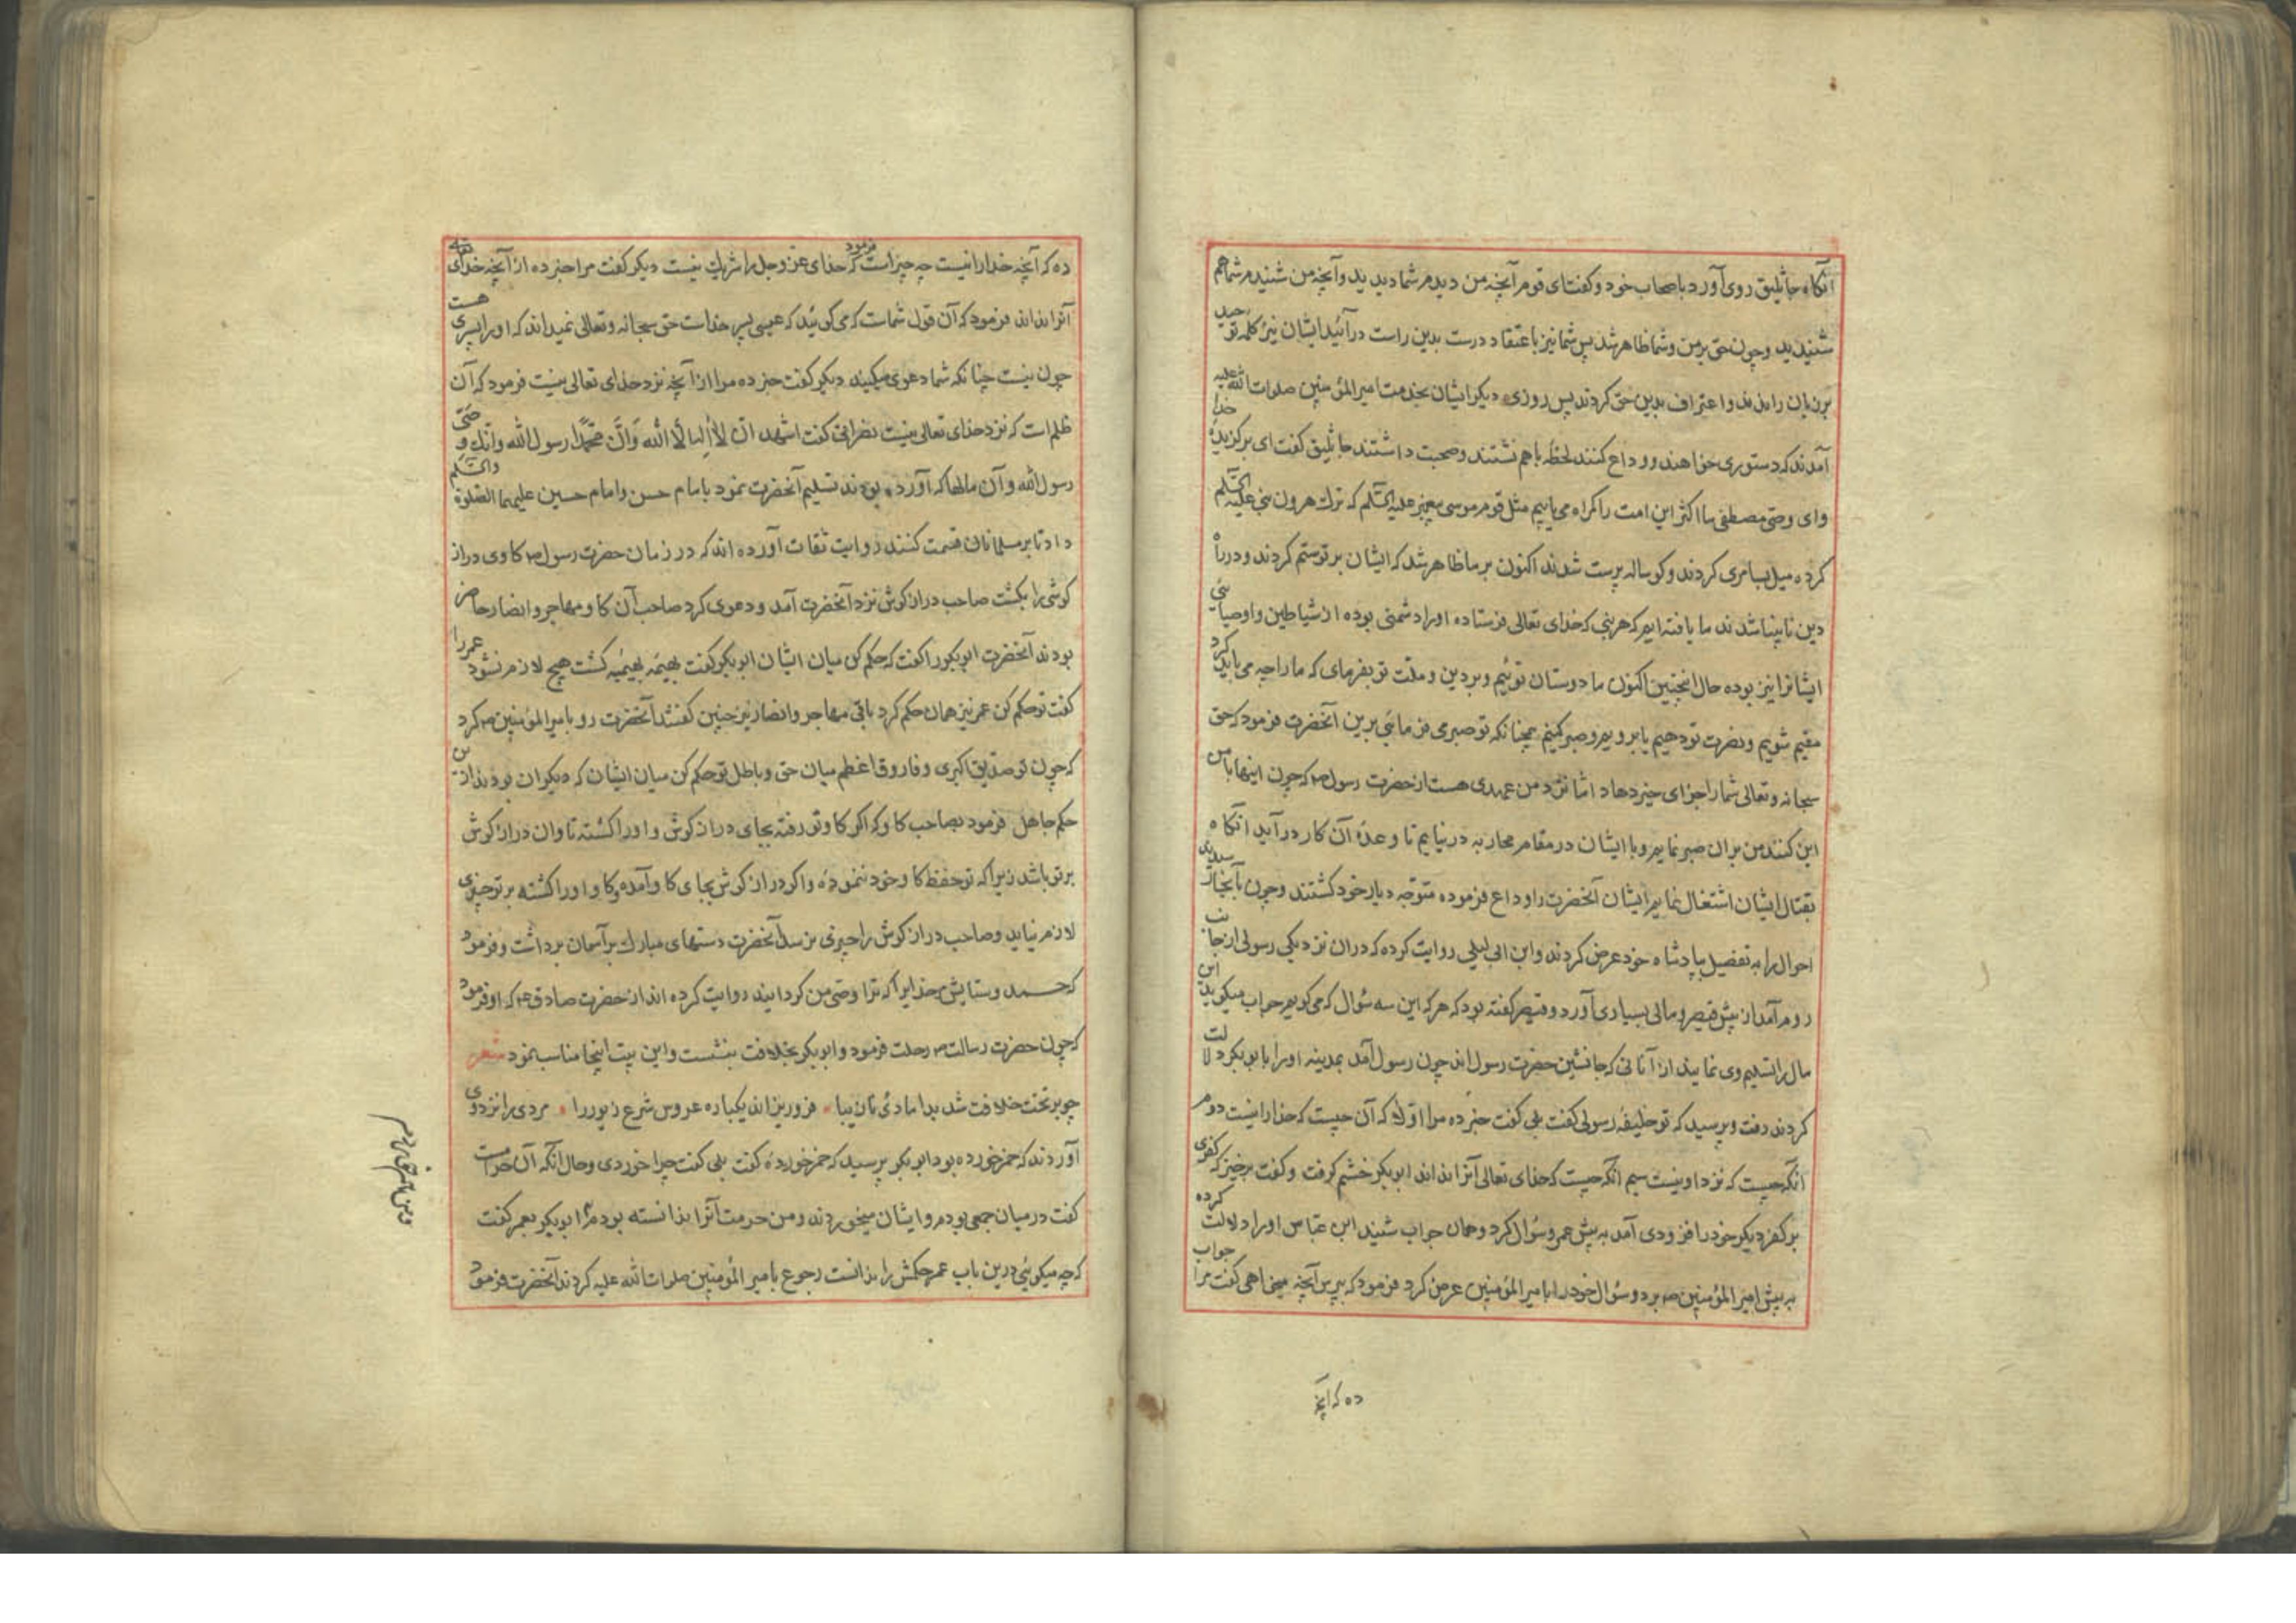 آنگاه جاثلیق روی آورد باصحاب خود و گفت ای قوم آنچه من دیدم شما دیدید و آنچه من شنیدم شما هم
شنیدید و چون حق بر من و شما ظاهر شد پس شما نیز باعتقاد درست بدین راست درآئید ایشان نیز کلمه توحید
بر زبان راندند و اعتراف بدین حق کردند پس روزی دیگر ایشان بخدمت امیرالمؤمنین صلوات الله علیه
آمدند که دستوری خواهند و وداع کنند لحظه باهم نشستند و صحبت داشتند جاثلیق گفت ای برگزیدۀ خدا
و ای وصی مصطفی ما اکثر این امت را گمراه می یابیم مثل قوم موسی پیغمبر علیه السّلم که ترک هرون نبی علیه السّلم
کرده میل بسامری کردند و کوساله پرست شدند اکنون بر ما ظاهر شد که ایشان بر تو ستم کردند و در راه
دین نابینا شدند ما یافته ایم که هر نبی که خدای تعالی فرستاده او را دشمنی بوده از شیاطین و اوصیای نبی
ایشانرا نیز بوده حال انچنین اکنون ما دوستان توئیم و بر دین و ملّت تو بفرمای که ما را چه می باید کرد
مقیم شویم و نصرت تو دهیم یا برویم و صبر کنیم همچنانکه تو صبر می فرمائی برین آنحضرت فرمود که حق
سبحانه و تعالی شما را جزای خیر دهاد اما نزد من عهدی هست از حضرت رسول ص که چون اینها با من
این کنند من بران صبر نمایم و با ایشان در مقام محاربه در نیایم تا وعدۀ آن کار درآید انکاه
بقتال ایشان اشتغال نمایم ایشان آنحضرت را وداع فرموده متوجّه دیار خود کشتند و چون بآنجا رسیدند
احوال را به تفصیل بپادشاه خود عرض کردند و ابن ابی لیلی روایت کرده که دران نزدیکی رسولی از جانب
روم آمد از پیش قیصر و مالی بسیاری آورد و قیصر کفته بود که هرکه این سه سؤال که می گویم جواب میگوید این
مال را تسلیم وی نمایند از آنانی که جانشین حضرت رسول اند چون رسول آمد بمدینه او را بابوبکر دلالت
کردند رفت و پرسید که تو خلیفه رسولی گفت بلی گفت خبر ده مرا اوّلا که آن چیست که خدا را نیست دوم
انکه چیست که نزد او نیست سیم آنکه چیست که خدای تعالی آنرا نداند ابوبکر خشم گرفت و گفت برخیز که کفری
بر کفر دیگر خود را فزودی آمد به پیش عمر و سؤال کرد و همان جواب شنید ابن عباس او را دلالت کرده
به پیش امیرالمؤمنین ص برد و سؤال خود را بامیرالمؤمنین عرض کرد فرمود که بپرس آنچه میخواهی گفت مرا جواب
ده که آنچه
ده که آنچه خدا را نیست چه چیز است فرمود که خدای عز و جل را شریک نیست دیگر گفت مرا خبر ده از آنچه خدای تعالی
آنرا نداند فرمود که آن قول شماست که می گوئید که عیسی پسر خداست حق سبحانه و تعالی نمیداند که او را پسری هست
چون نیست چنانکه شما دعوی میکنید دیگر گفت خبر ده مرا از آنچه نزد خدای تعالی نیست فرمود که آن
ظلم است که نزد خدای تعالی نیست نصرانی گفت اشهد ان لا اله الا الله و انّ محمّدا رسول الله و انّک وصیّ
رسول الله و آن مالها که آورده بودند تسلیم آنحضرت نمود بامام حسن و امام حسین علیهما الصّلوة والسّلم
داد تا بر مسلمانان قسمت کنند روایت ثقات آورده اند که در زمان حضرت رسول ص کاوی دراز
کوشی را بکشت صاحب دراز کوش نزد آنحضرت آمد و دعوی کرد صاحب آن کاو مهاجر و انصار حاضر
بودند آنحضرت ابوبکر را کفت که حکم کن میان ایشان ابوبکر کفت بهیمه بهیمه کشت هیچ لازم نشود عمر را
کفت تو حکم کن عمر نیز همان حکم کرد باقی مهاجر و انصار نیز چنین کفتند آنحضرت رو بامیرالمؤمنین ص کرد
که چون تو صدیق اکبری و فاروق اعظم میان حق و باطل تو حکم کن میان ایشان که دیگران بودند ازین
حکم جاهل فرمود بصاحب کاو که اکر کاو تو رفته بجای دراز کوش و او را کشته تاوان دراز کوش
بر تو باشد زیرا که تو حفظ کاو خود ننمودۀ و اکر دراز کوش بجای کاو آمده و کاو او را کشته بر تو چیزی
لازم نیاید و صاحب دراز کوش را چیزی نرسد آنحضرت دستهای مبارک بر آسمان برداشت و فرمود
که حمد و ستایش مر خدایرا که ترا وصی من کردانید روایت کرده اند از حضرت صادق ع که او فرمود
که چون حضرت رسالت ص رحلت فرمود و ابوبکر بخلافت بنشست و این بیت اینجا مناسب نمود شعر
چو بر تخت خلافت شد بدامادی نازیبا فرو ریزاند یکباره عروس شرع زیور را مردی را نزد وی
آوردند که خمر خورده بود ابوبکر پرسید که خمر خوردۀ کفت بلی کفت چرا خوردی و حال آنکه آن حرامست
کفت در میان جمعی بودم و ایشان میخوردند و من حرمت آنرا ندانسته بودم ابوبکر بعمر کفت
که چه میکوئی درین باب عمر حکمش را ندانست رجوع بامیرالمؤمنین صلوات الله علیه کردند آنحضرت فرمود